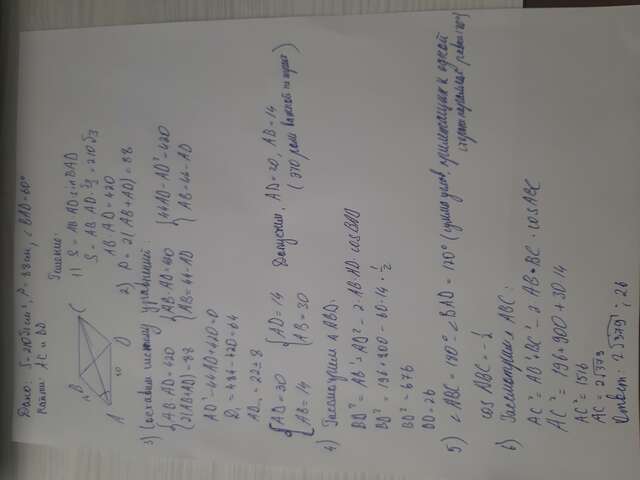 Дано: S=210√3 см², P=88 см, ∠BAD=60°
Найти: AC и BD
Решение:
B
C
A
D
60
1) S = AB·AD·sin BAD
S = AB·AD·√3/2 = 210√3
AB·AD = 420
2) P = 2(AB+AD) = 88
3) Составим систему уравнений:
{AB·AD=420
2(AB+AD)=88
{AB·AD=420
AB=44-AD
{44AD-AD²=420
AB=44-AD
AD²-44AD+420=0
D₁=484-420=64
AD₁,₂=22±8
{AD=30
AB=14
{AD=14
AB=30
Допустим, AD=30, AB=14
(это роли важной не играет)
4) Рассмотрим △ ABD:
BD²=AB²+AD²-2·AB·AD·cos BAD
BD²=196+900-60·14·1/2
BD²=676
BD=26
5) ∠ABC=180°-∠BAD=120° (сумма углов, прилежащих к одной
стороне параллелог. равна 180°)
cos ABC=-1/2
6) Рассмотрим △ ABC:
AC²=AB²+BC²-2·AB·BC·cos ABC
AC²=196+900+30·14
AC²=1516
AC=2√379
Ответ: 2√379; 26